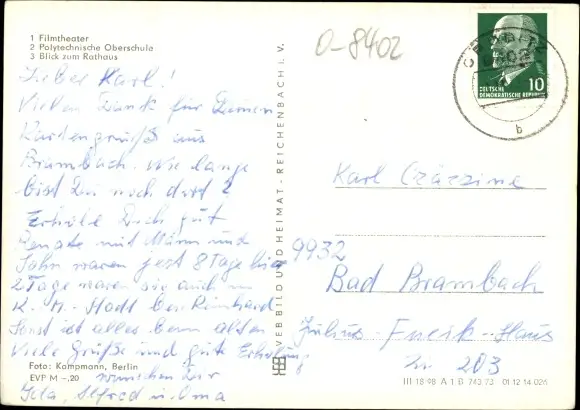 1 Filmtheater
2 Polytechnische Oberschule
3 Blick zum Rathaus
Lieber Karl!
Vielen Dank für Deinen
Kartengruß aus
Brambach. Wie lange
bist Du noch dort?
Erhole Dich gut
Renate mit Mann und
Sohn waren jest 8 Tage hier
2 Tage waren sie auch in
K. M. Stadt bei Reinhard
Sonst ist alles beim alten
Viele Grüße und gute Erholung
wünschen Dir
Alfred u. Oma
Foto: Kampmann, Berlin
EVP M -.20
VEB BILD UND HEIMAT · REICHENBACH i. V.
0-8402
DEUTSCHE
DEMOKRATISCHE REPUBLIK
10
b
Karl
9932
Bad Brambach
Julius-Fucik-Haus
Zi. 203
III 18 98 A 1 B 743 73 01 12 14 026